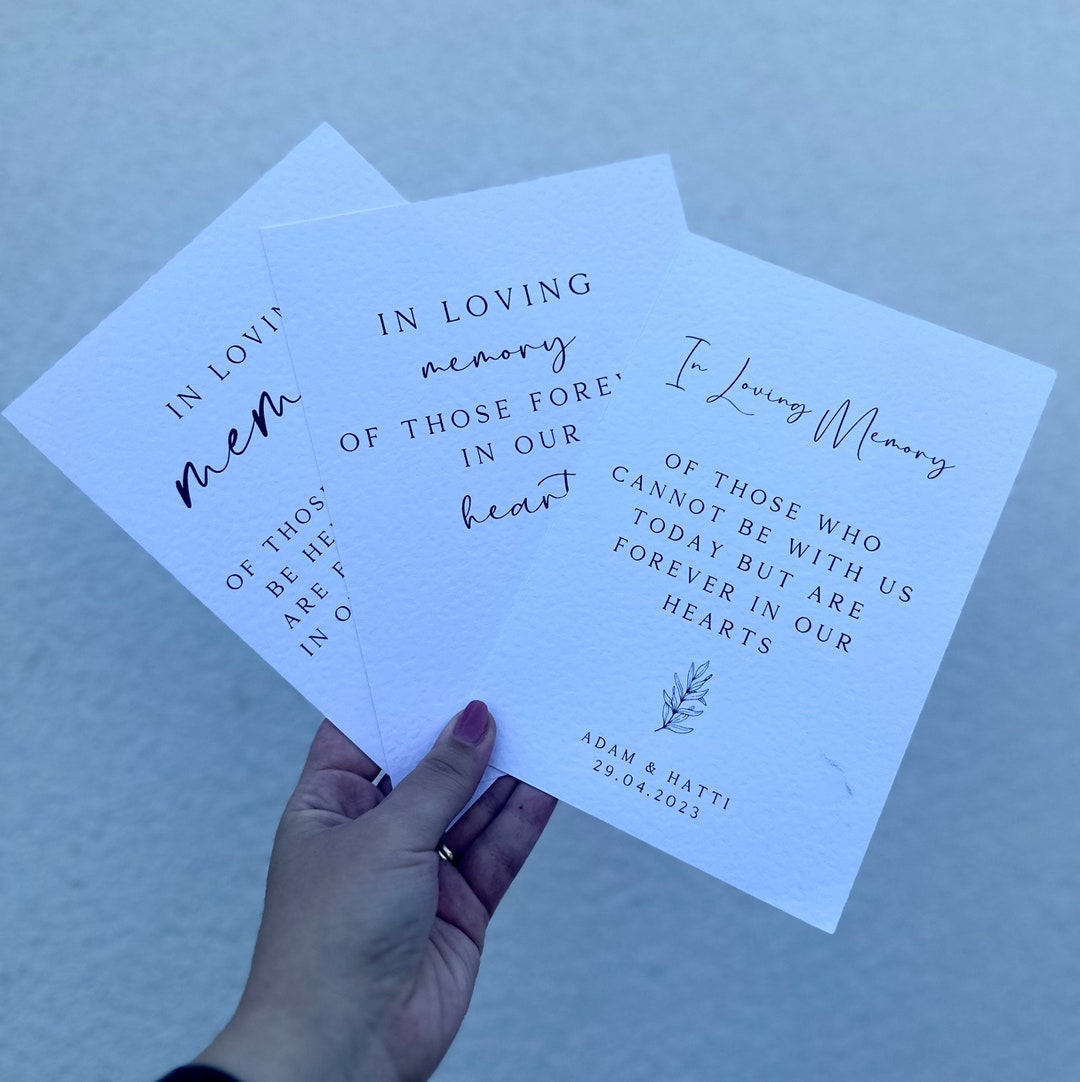 IN LOVIN
mem
OF THOS
BE HE
ARE F
IN O
IN LOVING
memory
OF THOSE FOREV
IN OUR
heart
In Loving Memory
OF THOSE WHO
CANNOT BE WITH US
TODAY BUT ARE
FOREVER IN OUR
HEARTS
ADAM & HATTI
29.04.2023